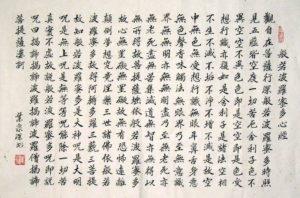 般若波羅蜜多心經
觀自在菩薩行深般若波羅蜜多時照
見五蘊皆空度一切苦厄舍利子色不
異空空不異色色即是空空即是色受
想行識亦復如是舍利子是諸法空相
不生不滅不垢不淨不增不減是故空
中無色無受想行識無眼耳鼻舌身意
無色聲香味觸法無眼界乃至無意識
界無無明亦無無明盡乃至無老死亦
無老死盡無苦集滅道無智亦無得以
無所得故菩提薩埵依般若波羅蜜多
故心無罣礙無罣礙故無有恐怖遠離
顛倒夢想究竟涅槃三世諸佛依般若
波羅蜜多故得阿耨多羅三藐三菩提
故知般若波羅蜜多是大神咒是大明
咒是無上咒是無等等咒能除一切苦
真實不虛故說般若波羅蜜多咒即說
咒曰揭諦揭諦波羅揭諦波羅僧揭諦
菩提薩婆訶